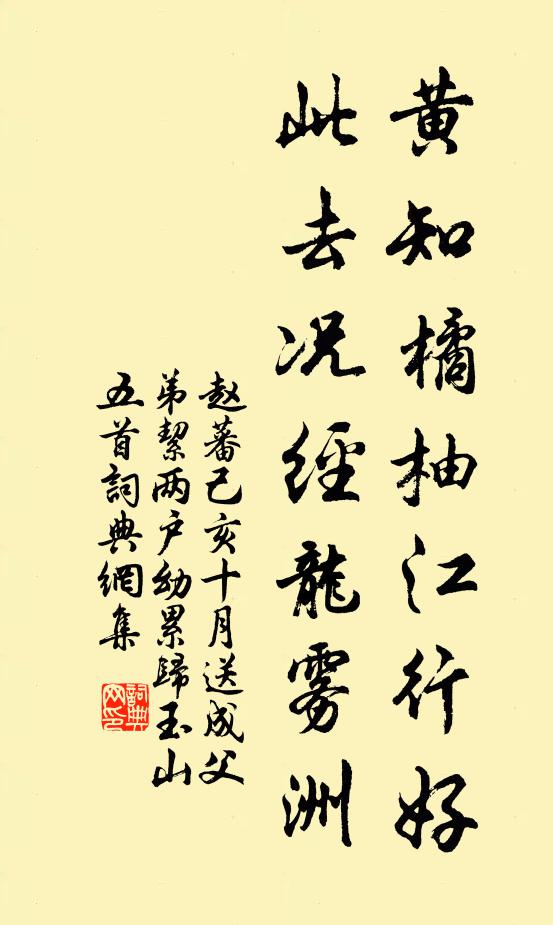 黄知橘柚江行好
此去况經龍雾洲
赵蕃己亥十月送成父
弟絜两户幼累歸玉山
五首詞典網集
詞典
网印